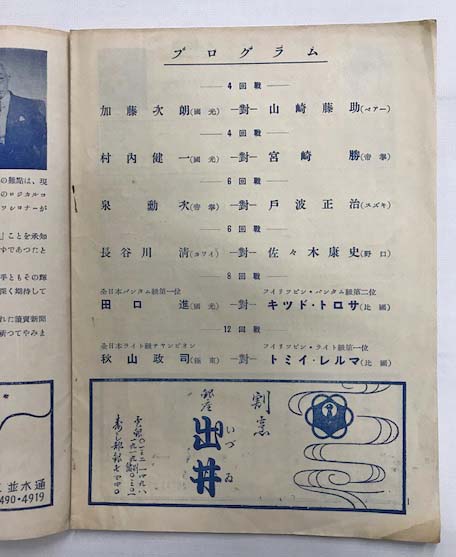 プログラム
4回戦
加藤次朗(國光)―對―山崎藤助(ベアー)
4回戦
村內健一(國光)―對―宮崎勝(帝拳)
6回戦
泉勳次(帝拳)―對―戸波正治(スズキ)
6回戦
長谷川清(カワイ)―對―佐々木康史(野口)
8回戦
全日本バンタム級第一位 フイリツピン・バンタム級第二位
田口進(國光)―對―キツド・トロサ(比國)
12回戦
全日本ライト級チヤンピオン フイリツピン・ライト級第一位
秋山政司(極東)―對―トミイ・レルマ(比國)
割烹
銀座
出井
いづゐ
の難點は、現
のロジカルコ
ツシヨナーが
ことを承知
すであつたと
手ともその輝
深く期待して
れた讀賣新聞
並木通
490・4919